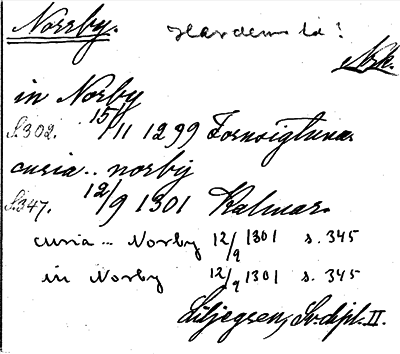 Norrby. Hardemsta?
Nrk.
in Norby
S.302. 15/11 1299 Fornsigtuna.
curia.. norbij
S.347. 12/9 1301 Kalmar.
curia ... Norby 12/9 1301 s. 345
in Norby 12/9 1301 s. 345
Liljegren, Sv. dipl. II.